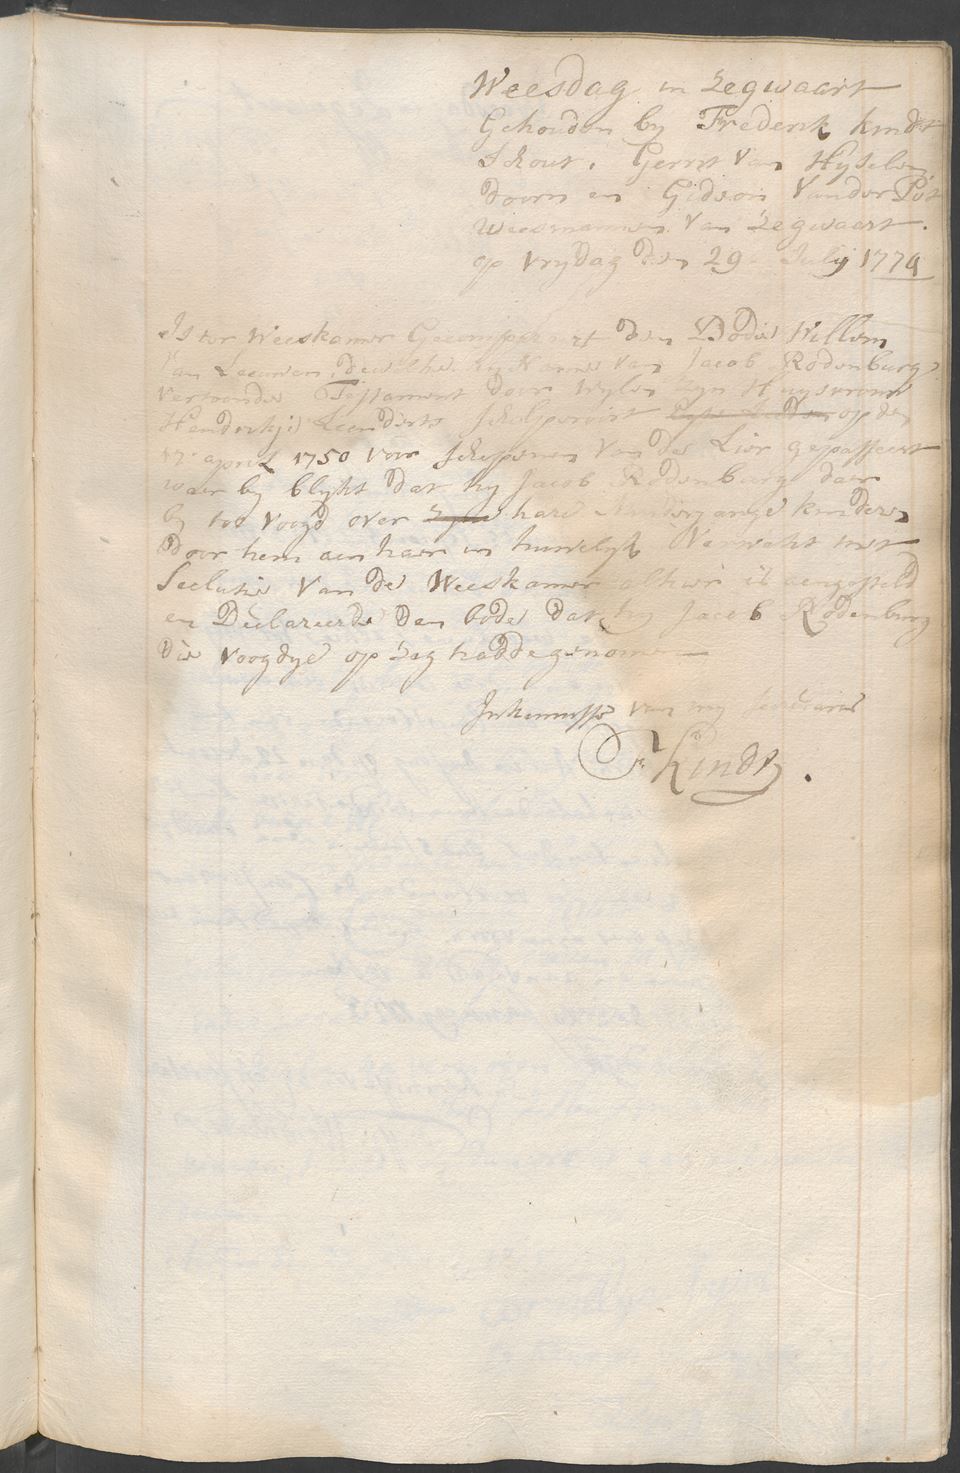 Weesdag in Zegwaart
Gehouden by Frederik kindt
Schout. Gerrit Van Hyselen
doorn en Gideon Vander Pot
Weesmannen Van Zegwaart.
op Vrydag den 29 July 1774
Is ter Weeskamer Gecompareert den Bode Willem
Van Leeuwen, dewelke uyt Name Van Jacob Rodenburg
vertoonde Testament door wylen Zyn Huysvrouw
Hendrikje Leenderts Schilperoirt op den
17 april 1750 voor Schepenen Van de Lier gepasseert
waer by blykt dat hy Jacob Rodenburg daer
by tot Voogd over Zyne hare Minderjarige kinderen
door hem aen haer in huwelyk Verwekt met
Seclusie Van de Weeskamer alhier is aengesteld
en Declareerde den bode dat hy Jacob Rodenburg
die voogdye op Zag hadde genomen
In kennisse van my secretaris
F: Kindt.